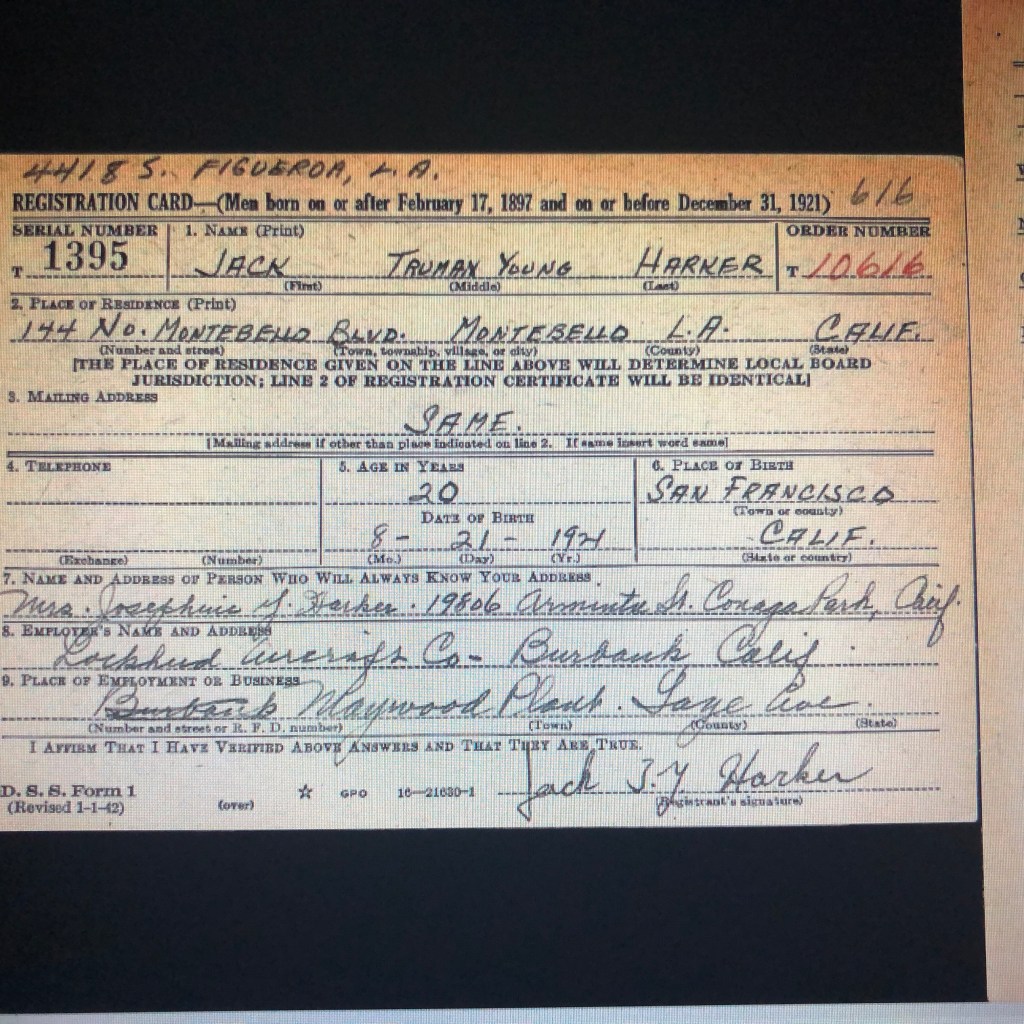 4418 S. FIGUEROA, L.A.
REGISTRATION CARD—(Men born on or after February 17, 1897 and on or before December 31, 1921) 616
SERIAL NUMBER 1. NAME (Print) ORDER NUMBER
T 1395 JACK TRUMAN YOUNG HARKER T 10616
(First) (Middle) (Last)
2. PLACE OF RESIDENCE (Print)
144 NO. MONTEBELLO BLVD. MONTEBELLO L.A. CALIF.
(Number and street) (Town, township, village, or city) (County) (State)
[THE PLACE OF RESIDENCE GIVEN ON THE LINE ABOVE WILL DETERMINE LOCAL BOARD
JURISDICTION; LINE 2 OF REGISTRATION CERTIFICATE WILL BE IDENTICAL]
3. MAILING ADDRESS
SAME.
[Mailing address if other than place indicated on line 2. If same insert word same]
4. TELEPHONE 5. AGE IN YEARS 6. PLACE OF BIRTH
20 SAN FRANCISCO
DATE OF BIRTH (Town or county)
8- 21- 1921 CALIF.
(Exchange) (Number) (Mo.) (Day) (Yr.) (State or country)
7. NAME AND ADDRESS OF PERSON WHO WILL ALWAYS KNOW YOUR ADDRESS
Mrs. Josephine Y. Harker. 19806 Arminta St. Conaga Park, Calif.
8. EMPLOYER'S NAME AND ADDRESS
Lockheed Aircraft Co- Burbank, Calif
9. PLACE OF EMPLOYMENT OR BUSINESS
Burbank Maywood Plant. Ave.
(Number and street or R. F. D. number) (Town) (County) (State)
I AFFIRM THAT I HAVE VERIFIED ABOVE ANSWERS AND THAT THEY ARE TRUE.
Jack T.Y Harker
D. S. S. Form 1 GPO 16—21630-1 (Registrant's signature)
(Revised 1-1-42) (over)